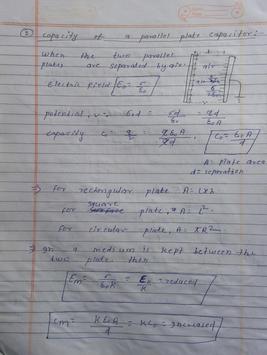 ② Capacity of a parallel plate capacitor:-
When the two parallel
plates are separated by air.
air
Electric field E₀ = σ/ε₀
potential, V = E₀d = σd/ε₀ = qd/ε₀A
capacity C₀ = q/V = qε₀A/qd, C₀ = ε₀A/d
A = plate area
d = separation
⇒ for rectangular plate A = l×b
for square plate, A = l²
for circular plate, A = πR²
⇒ If a medium is kept between the
two plate then
Em = σ/ε₀k = E₀/k = reduced
Cm = kε₀A/d = kC₀ = increased